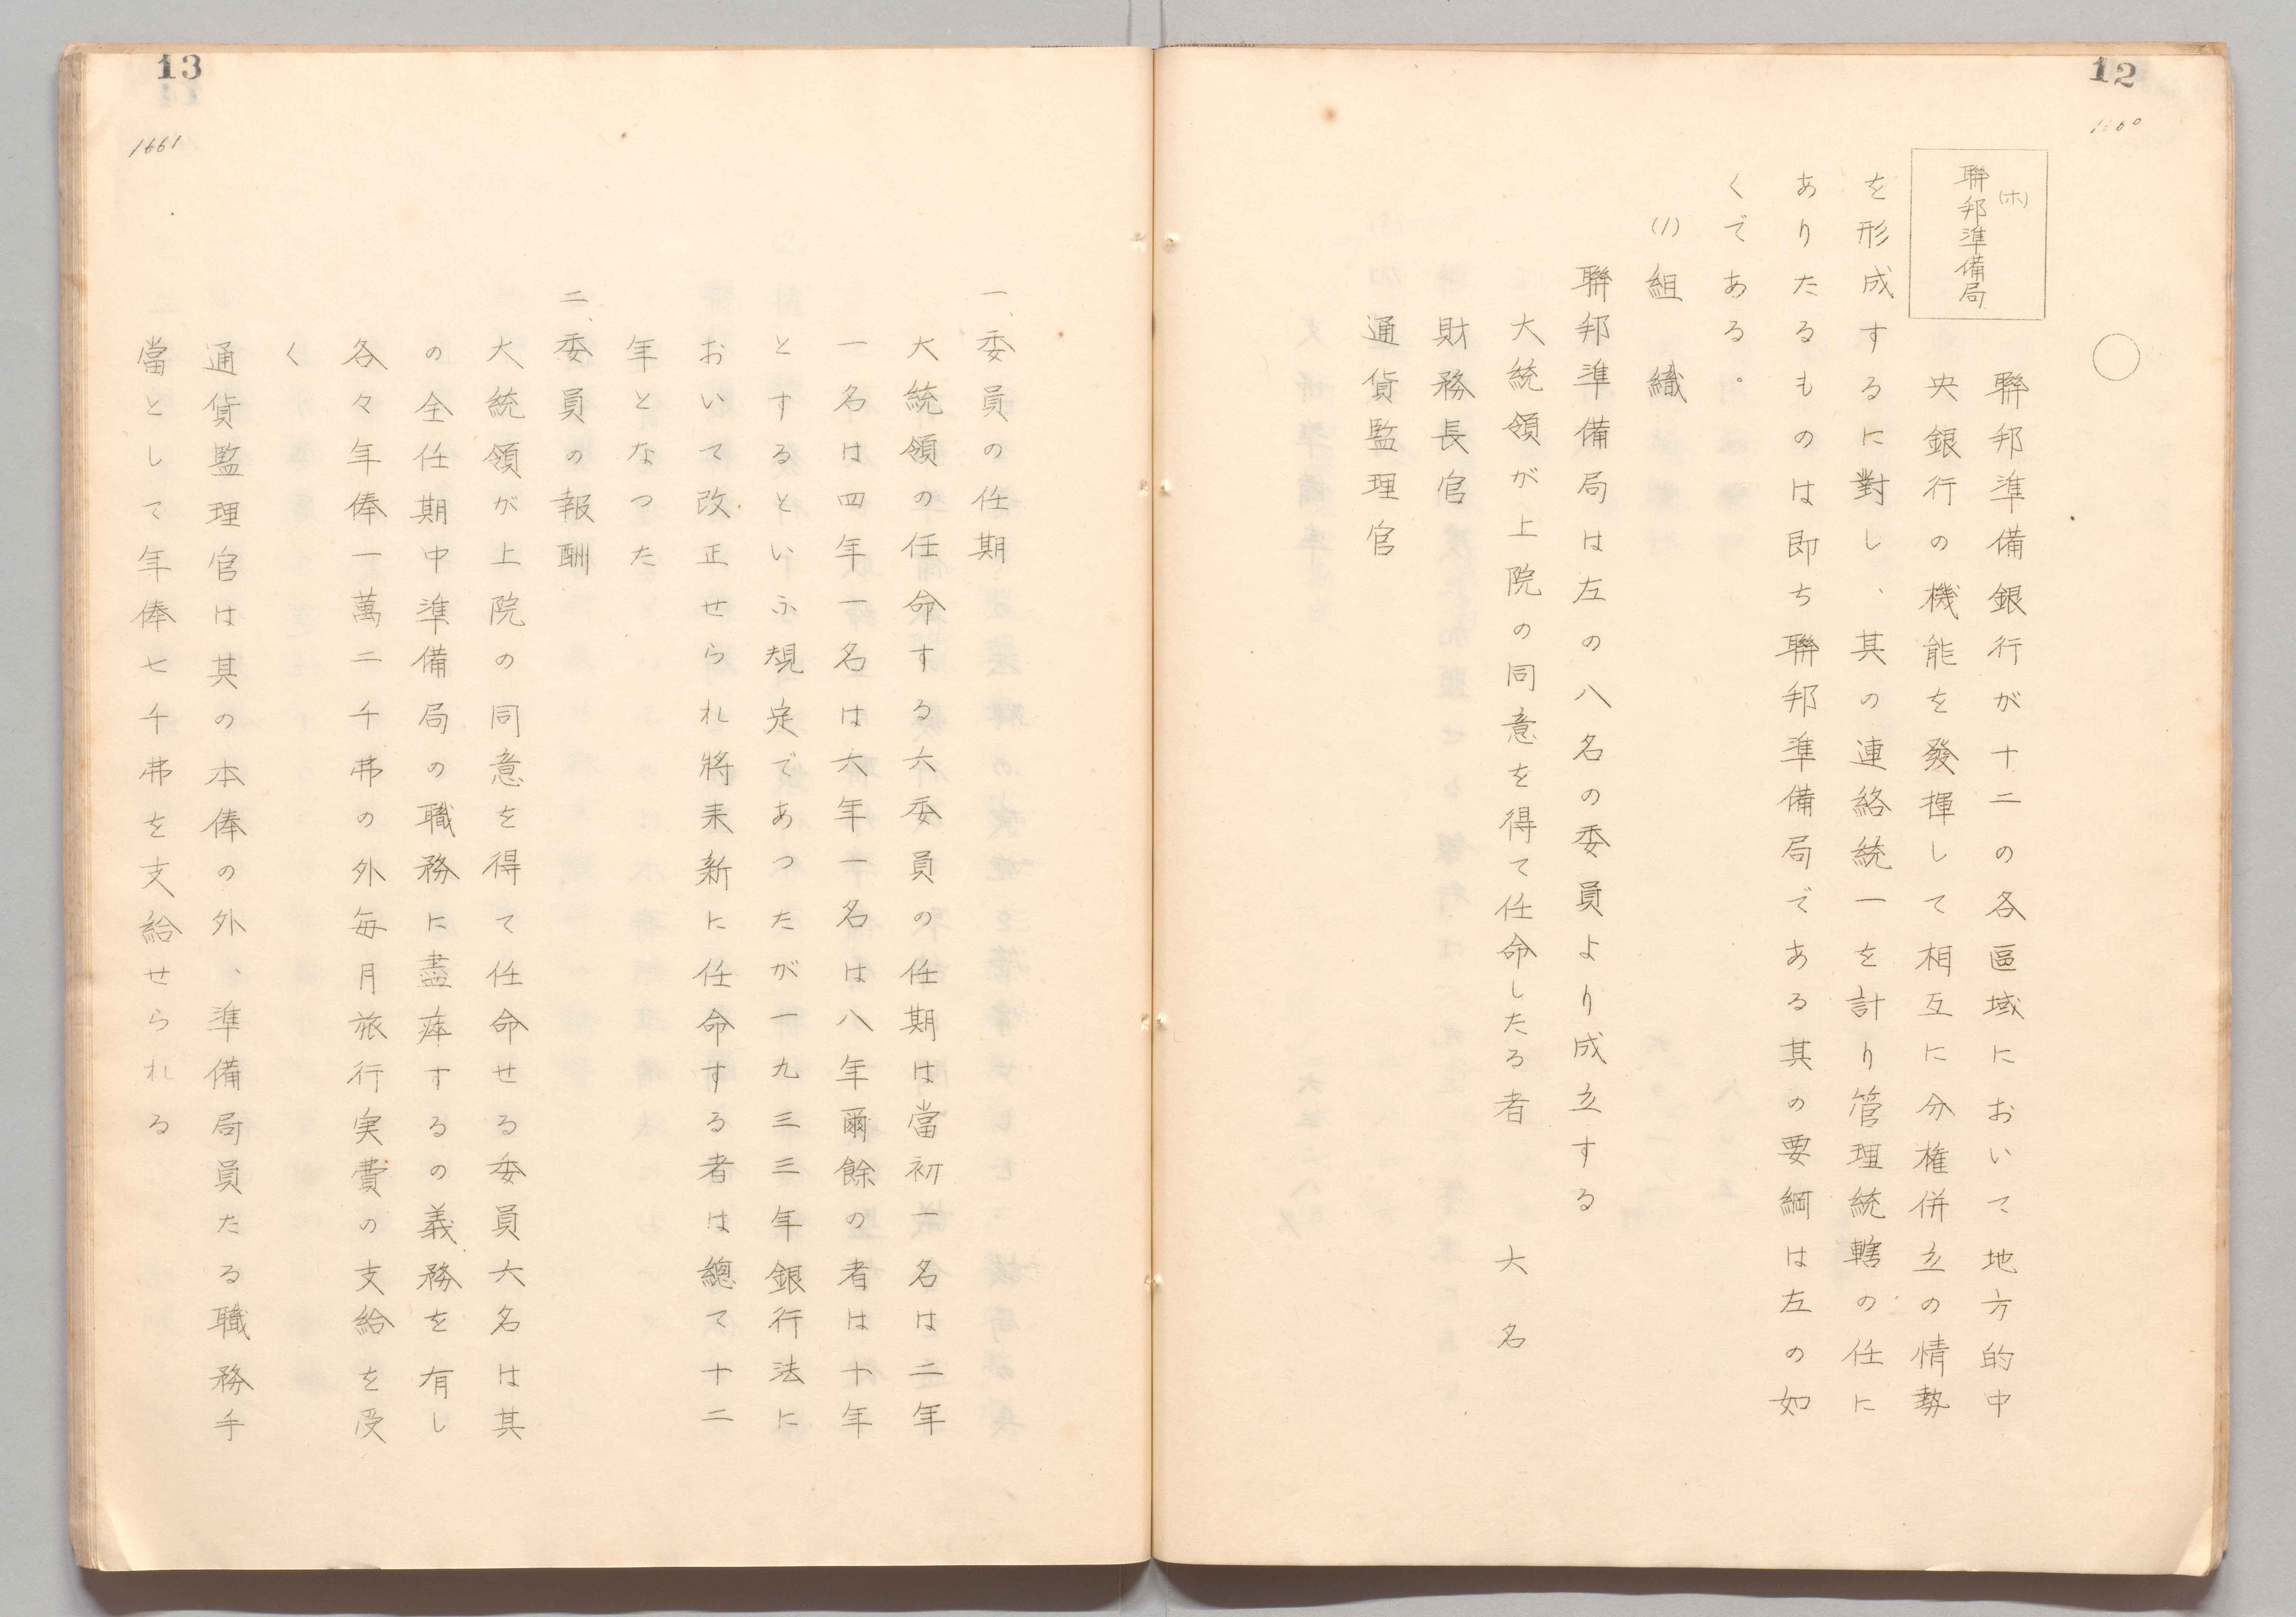 12
1660
(ホ)
聯邦準備局
聯邦準備銀行が十二の各區域において地方的中
央銀行の機能を發揮して相互に分権併立の情勢
を形成するに對し、其の連絡統一を計り管理統轄の任に
ありたるものは即ち聯邦準備局である其の要綱は左の如
くである。
(1)組織
聯邦準備局は左の八名の委員より成立する
大統領が上院の同意を得て任命したる者 六名
財務長官
通貨監理官
13
1661
一、委員の任期
大統領の任命する六委員の任期は當初一名は二年
一名は四年一名は六年一名は八年爾餘の者は十年
とするといふ規定であつたが一九三三年銀行法に
おいて改正せられ將来新に任命する者は總て十二
年となつた
二、委員の報酬
大統領が上院の同意を得て任命せる委員六名は其
の全任期中準備局の職務に盡瘁するの義務を有し
各々年俸一萬二千弗の外毎月旅行実費の支給を受
く
通貨監理官は其の本俸の外、準備局員たる職務手
當として年俸七千弗を支給せられる